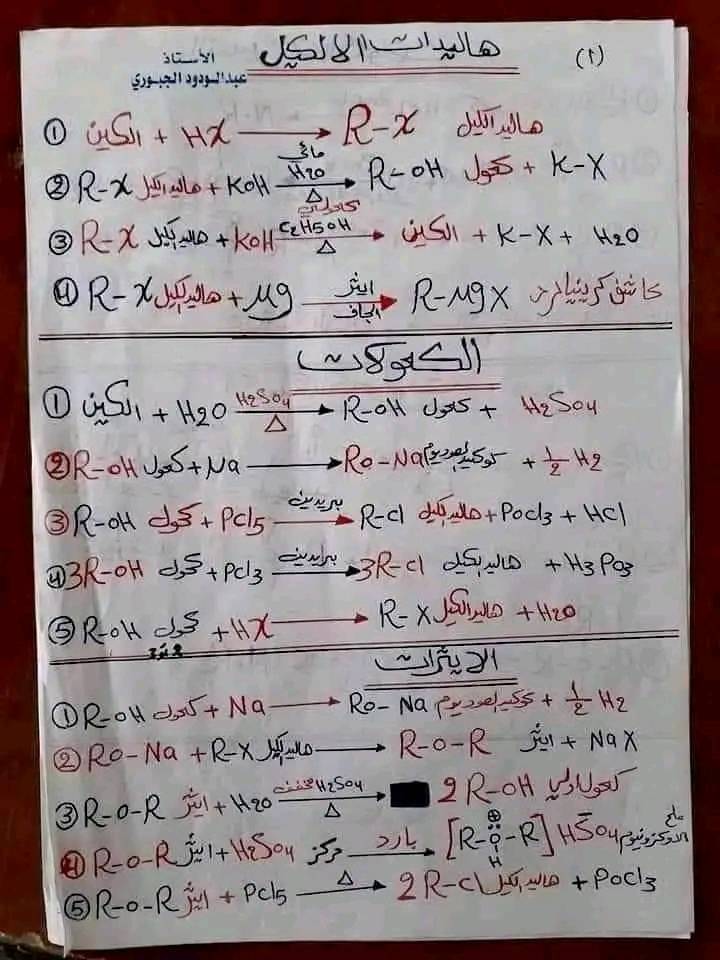 (٢) هاليدات الالكيل
الأستاذ
عبدالودود الجبوري
① الكين + HX ⟶ R-X هاليد الكيل
② R-X هاليد الكيل + KOH ⟶ مائي H2O △ R-OH كحول + K-X
③ R-X هاليد الكيل + KOH ⟶ كحولي C2H5OH △ الكين + K-X + H2O
④ R-X هاليد الكيل + Mg ⟶ ايثر الجاف R-MgX كاشف كرينيارد
الكحولات
① الكين + H2O ⟶ H2SO4 △ R-OH كحول + H2SO4
② R-OH كحول + Na ⟶ RO-Na الصوديوم + ½ H2
③ R-OH كحول + PCl5 ⟶ بيريدين R-Cl هاليد الكيل + POCl3 + HCl
④ 3R-OH كحول + PCl3 ⟶ بيريدين 3R-Cl هاليد الكيل + H3PO3
⑤ R-OH كحول + HX ⟶ R-X هاليد الكيل + H2O
الايثرات
① R-OH كحول + Na ⟶ RO-Na الصوديوم + ½ H2
② RO-Na + R-X هاليد الكيل ⟶ R-O-R ايثر + NaX
③ R-O-R ايثر + H2O ⟶ مخفف H2SO4 △ 2R-OH كحول اولي
④ R-O-R ايثر + H2SO4 مركز ⟶ بارد [R-O-R] ⊕ H HSO4 - ملح الاوكزونيوم
⑤ R-O-R ايثر + PCl5 ⟶ △ 2R-Cl هاليد الكيل + POCl3